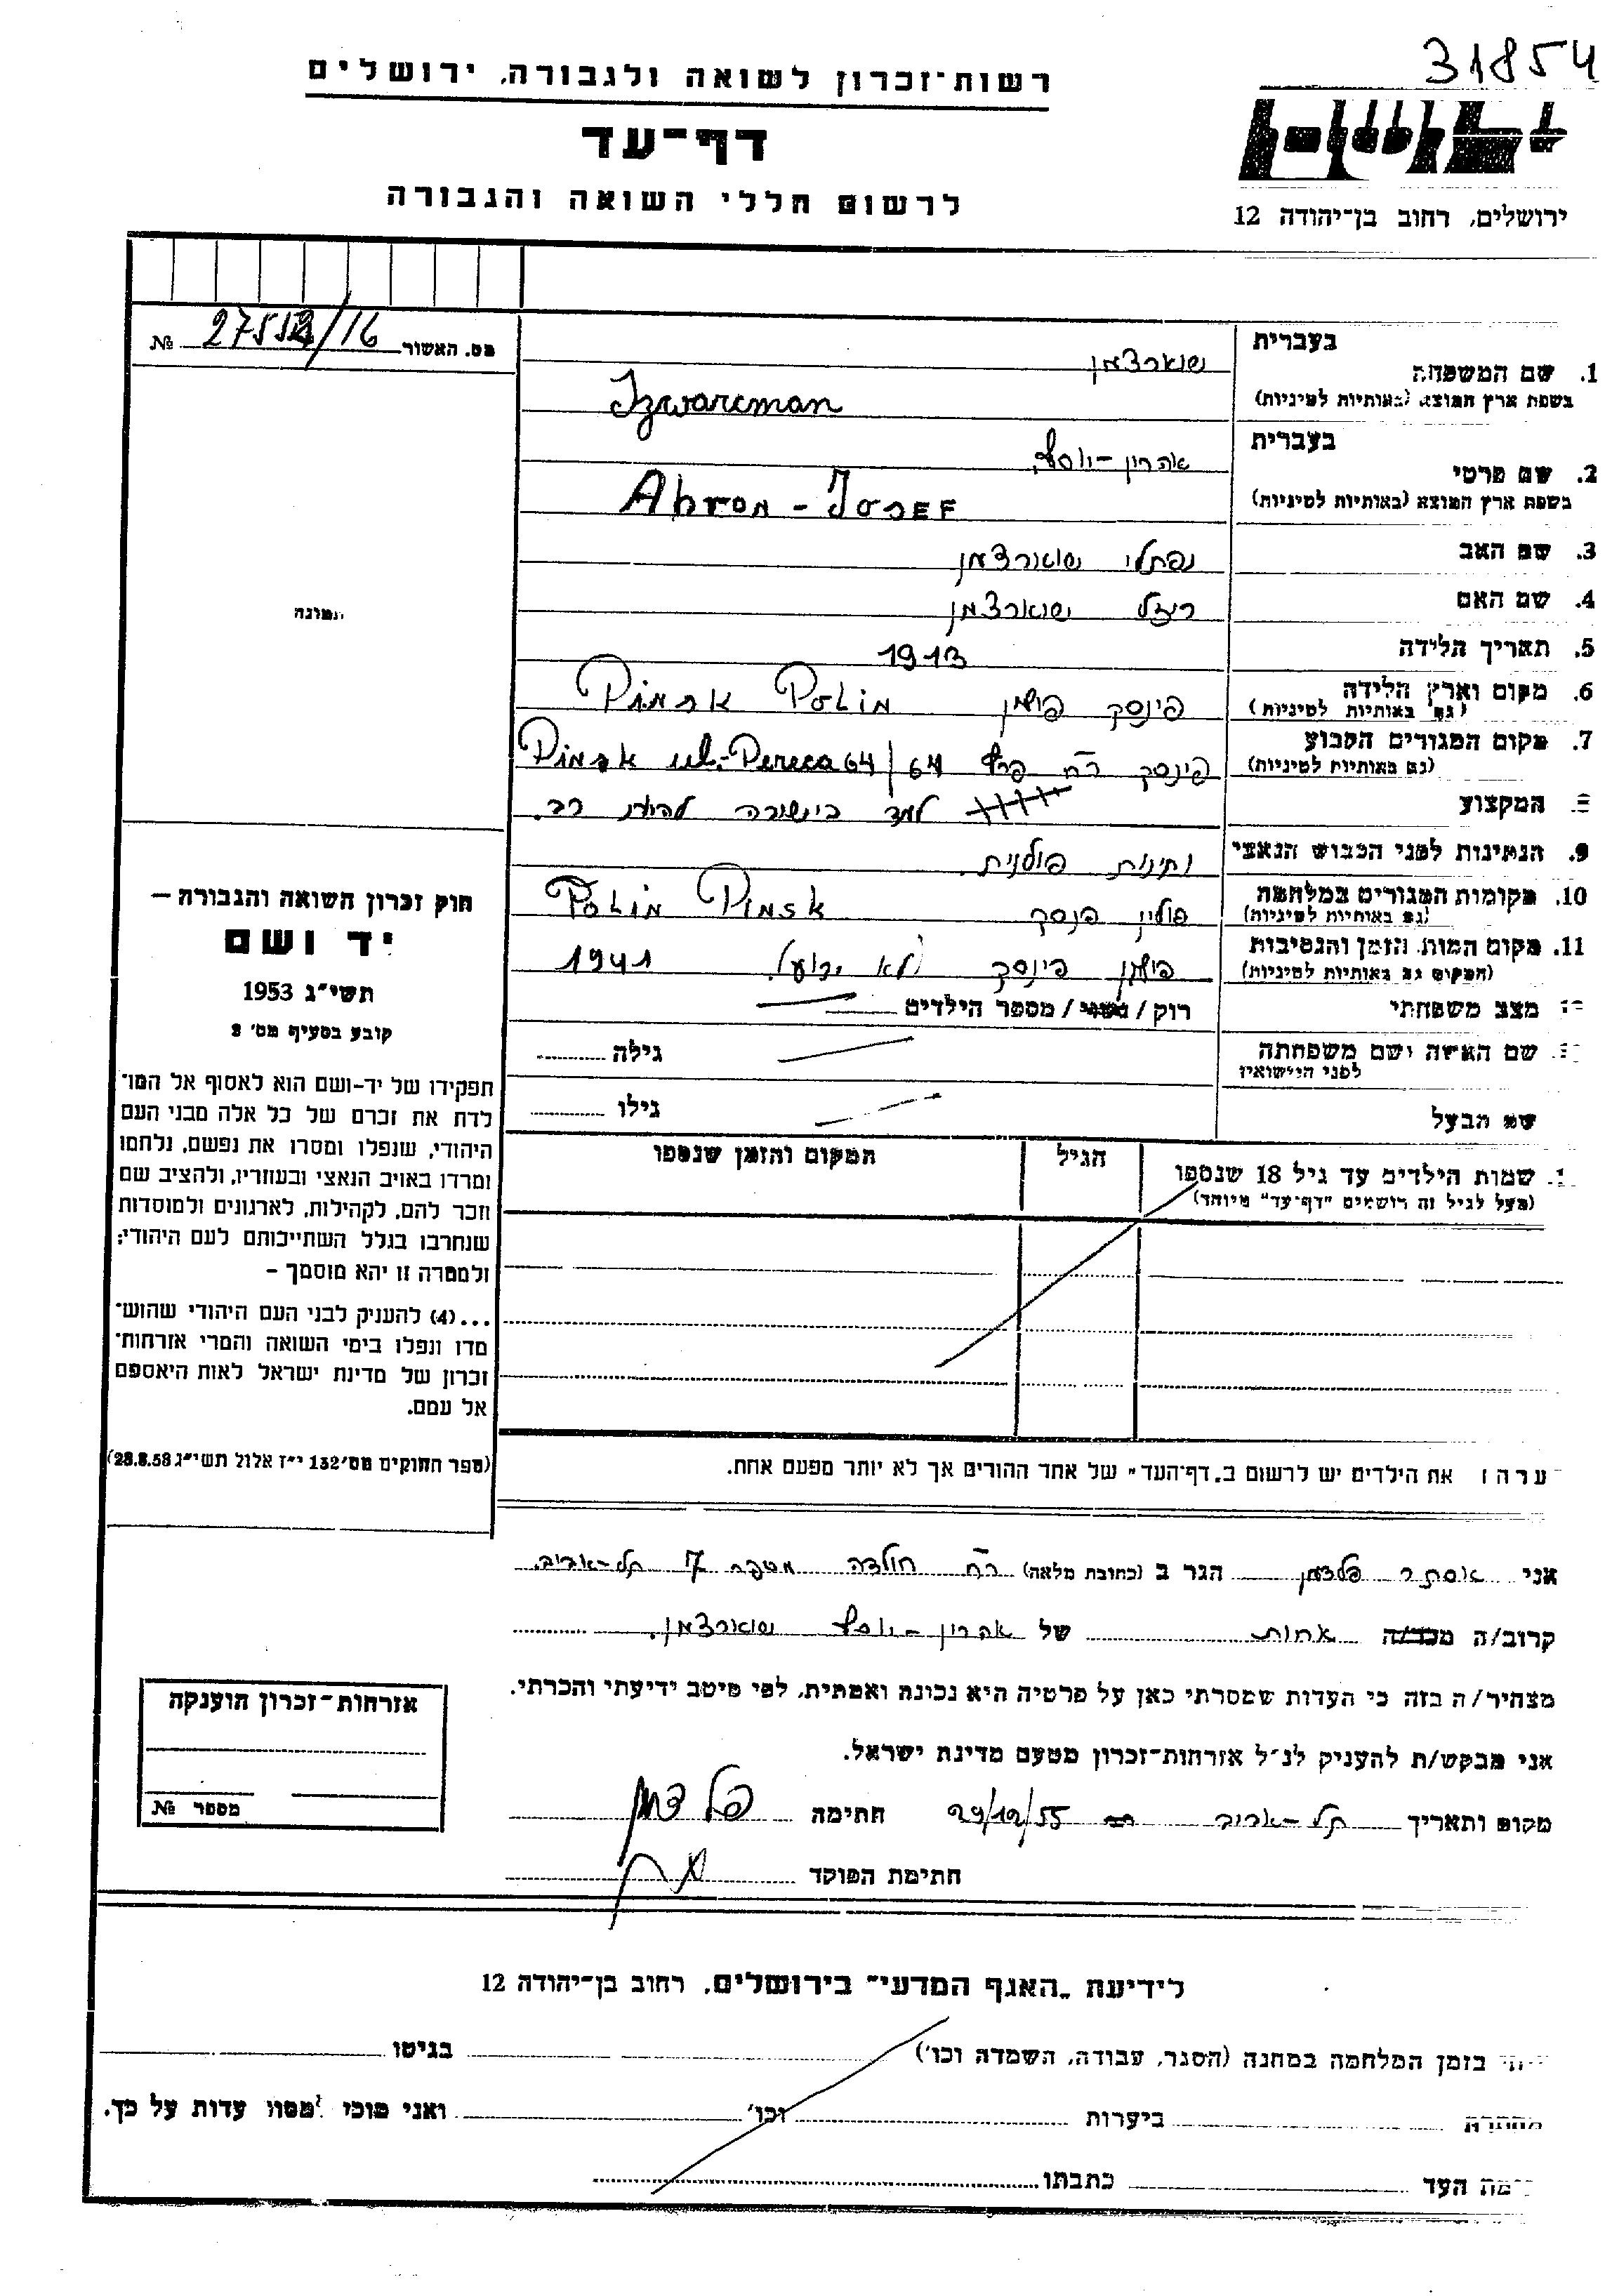 31854
רשות־זכרון לשואה ולגבורה, ירושלים
דף־עד
לרשום חללי השואה והגבורה
ירושלים, רחוב בן־יהודה 12
מס. האשור № /16
1. שם המשפחה בעברית שווארצמן
בשפת ארץ המוצא (באותיות לטיניות) Szwarcman
2. שם פרטי בעברית אהרון - יוסף
בשפת ארץ המוצא (באותיות לטיניות) Ahron - Josef
3. שם האב נפתלי שווארצמן
4. שם האם רייזל שווארצמן
5. תאריך הלידה 1913
6. מקום וארץ הלידה פינסק פולין Pinsk Polin
(גם באותיות לטיניות)
7. מקום המגורים הקבוע פינסק רח פרץ 64 / Pinsk ul. Pereca 64
(גם באותיות לטיניות)
המקצוע למד בישיבה להיות רב.
9. הנתינות לפני הכבוש הנאצי נתינות פולנית
10. מקומות המגורים במלחמה פולין פינסק Polin Pinsk
(גם באותיות לטיניות)
11. מקום המות, הזמן והנסיבות פולין פינסק (לא ידוע) 1941
(המקום גם באותיות לטיניות)
מצב משפחתי רוק / נשוי / מספר הילדים
שם האשה ושם משפחתה גילה
לפני הנישואין
שם הבעל גילו
שמות הילדים עד גיל 18 שנספו הגיל המקום והזמן שנספו
(מעל לגיל זה רושמים "דף־עד" מיוחד)
הערה: את הילדים יש לרשום ב"דף־העד" של אחד ההורים אך לא יותר מפעם אחת.
תמונה
חוק זכרון השואה והגבורה —
יד ושם
תשי"ג 1953
קובע בסעיף מס' 2
תפקידו של יד-ושם הוא לאסוף אל המו־
לדת את זכרם של כל אלה מבני העם
היהודי, שנפלו ומסרו את נפשם, נלחמו
ומרדו באויב הנאצי ובעוזריו, ולהציב שם
וזכר להם, לקהילות, לארגונים ולמוסדות
שנחרבו בגלל השתייכותם לעם היהודי;
ולמטרה זו יהא מוסמך —
...(4) להעניק לבני העם היהודי שהוש־
מדו ונפלו בימי השואה והמרי אזרחות־
זכרון של מדינת ישראל לאות היאספם
אל עמם.
(ספר החוקים מס' 132 י"ז אלול תשי"ג 28.8.53)
אני אסתר פלדמן הגר ב (כתובת מלאה) רח חולדה 7 תל-אביב
קרוב/ה מכר/ה אחות של אהרון - יוסף שווארצמן.
מצהיר/ה בזה כי העדות שמסרתי כאן על פרטיה היא נכונה ואמתית, לפי מיטב ידיעתי והכרתי.
אני מבקש/ת להעניק לנ"ל אזרחות־זכרון מטעם מדינת ישראל.
מקום ותאריך תל-אביב 29/12/55 חתימה פלדמן
חתימת הפוקד
אזרחות־זכרון הוענקה
מספר №
לידיעת "האגף המדעי" בירושלים, רחוב בן־יהודה 12
בזמן המלחמה במחנה (הסגר, עבודה, השמדה וכו') בגיטו
ביערות וכו' ואני מוכן למסור עדות על כך.
העד כתבתו